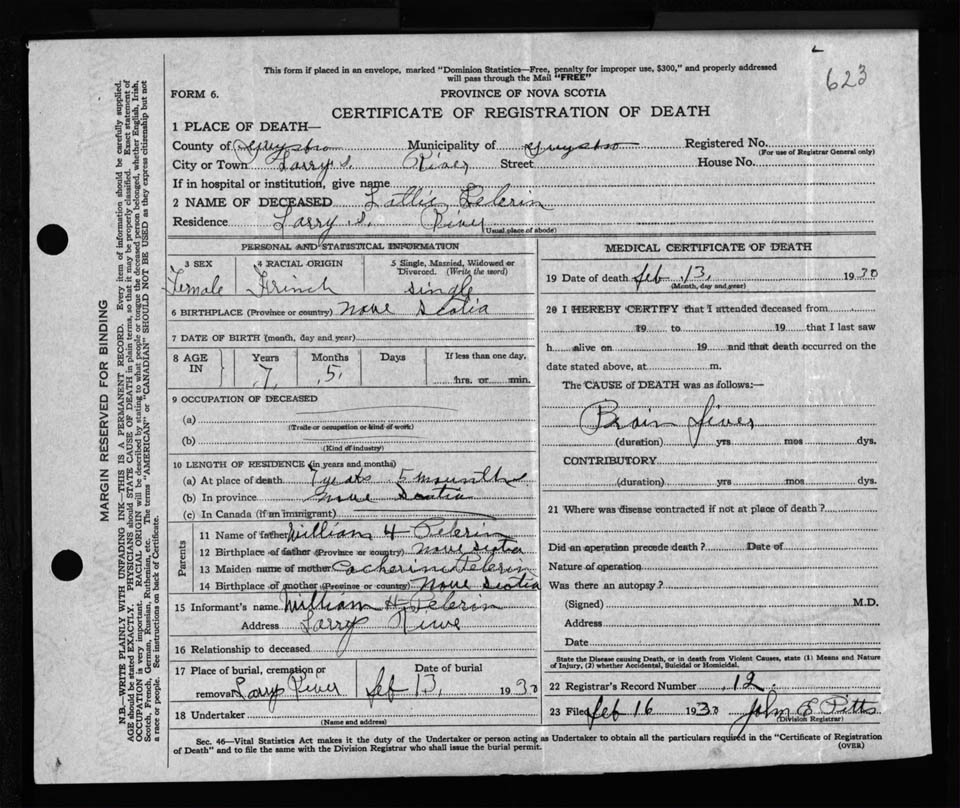 623
This form if placed in an envelope, marked "Dominion Statistics—Free, penalty for improper use, $300," and properly addressed
will pass through the Mail "FREE"
FORM 6.
PROVINCE OF NOVA SCOTIA
CERTIFICATE OF REGISTRATION OF DEATH
1 PLACE OF DEATH—
County of Guysbro Municipality of Guysbro Registered No.
(For use of Registrar General only)
City or Town Larry s. River Street House No.
If in hospital or institution, give name
2 NAME OF DECEASED Lattie Pelerin
Residence Larry s. River
(Usual place of abode)
PERSONAL AND STATISTICAL INFORMATION
3 SEX 4 RACIAL ORIGIN 5 Single, Married, Widowed or
Divorced. (Write the word)
Female Frinch single
6 BIRTHPLACE (Province or country) Nove Scotia
7 DATE OF BIRTH (month, day and year)
8 AGE IN Years Months Days If less than one day,
7 5 hrs. or min.
9 OCCUPATION OF DECEASED
(a)
(Trade or occupation or kind of work)
(b)
(Kind of industry)
10 LENGTH OF RESIDENCE (in years and months)
(a) At place of death 7 years 5 mounths
(b) In province Nove Scotia
(c) In Canada (if an immigrant)
Parents
11 Name of father William H Pelerin
12 Birthplace of father (Province or country) Nove Scotia
13 Maiden name of mother Catherine Pelerin
14 Birthplace of mother (Province or country) Nove Scotia
15 Informant's name William H. Pelerin
Address Larry River
16 Relationship to deceased
17 Place of burial, cremation or Date of burial
removal Larrys River feb 13, 1930
18 Undertaker
(Name and address)
MEDICAL CERTIFICATE OF DEATH
19 Date of death feb 13, 1930
(Month, day and year)
20 I HEREBY CERTIFY that I attended deceased from
19 to 19 that I last saw
h alive on 19 and that death occurred on the
date stated above, at m.
The CAUSE of DEATH was as follows:—
Brain fiver
(duration) yrs mos dys.
CONTRIBUTORY
(duration) yrs mos dys.
21 Where was disease contracted if not at place of death?
Did an operation precede death? Date of
Nature of operation
Was there an autopsy?
(Signed) M.D.
Address
Date
State the Disease causing Death, or in death from Violent Causes, state (1) Means and Nature
of Injury, (2) whether Accidental, Suicidal or Homicidal.
22 Registrar's Record Number 12.
23 Filed feb 16 1930 John E Pitts
(Division Registrar)
Sec. 46—Vital Statistics Act makes it the duty of the Undertaker or person acting as Undertaker to obtain all the particulars required in the "Certificate of Registration
of Death" and to file the same with the Division Registrar who shall issue the burial permit.
(OVER)
MARGIN RESERVED FOR BINDING
N.B.—WRITE PLAINLY WITH UNFADING INK—THIS IS A PERMANENT RECORD. Every item of information should be carefully supplied.
AGE should be stated EXACTLY. PHYSICIANS should STATE CAUSE OF DEATH in plain terms, so that it may be properly classified. Exact statement of
OCCUPATION is very important. RACIAL ORIGIN will be described by stating to what people or tongue the deceased person belonged, whether English, Irish,
Scotch, French, German, Russian, Ruthenian, etc. The terms "AMERICAN" or "CANADIAN" SHOULD NOT BE USED as they express citizenship but not
a race or people. See instructions on back of Certificate.